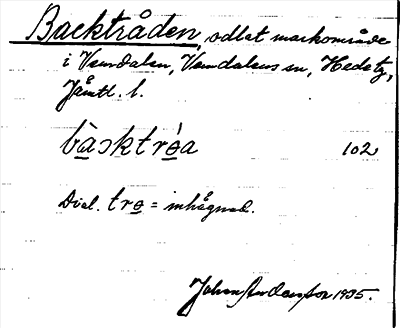 Backtråden, odlat markområde
i Vemdalen, Vemdalens sn, Hede tg,
Jämtl. l.
bàsktrǿa 102
Dial. trø = inhägnad.
Johan Andersson 1935.